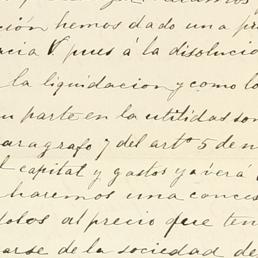 ción hemos dado una pr
acia V. pues á la disolucio
la liquidacion y como lo
u parte en la utitidas son
aragrafo 7 del artº 5 de n
l capital y gastos ya verá
haremos una conces
dolos al precio que ten
arse de la sociedad de